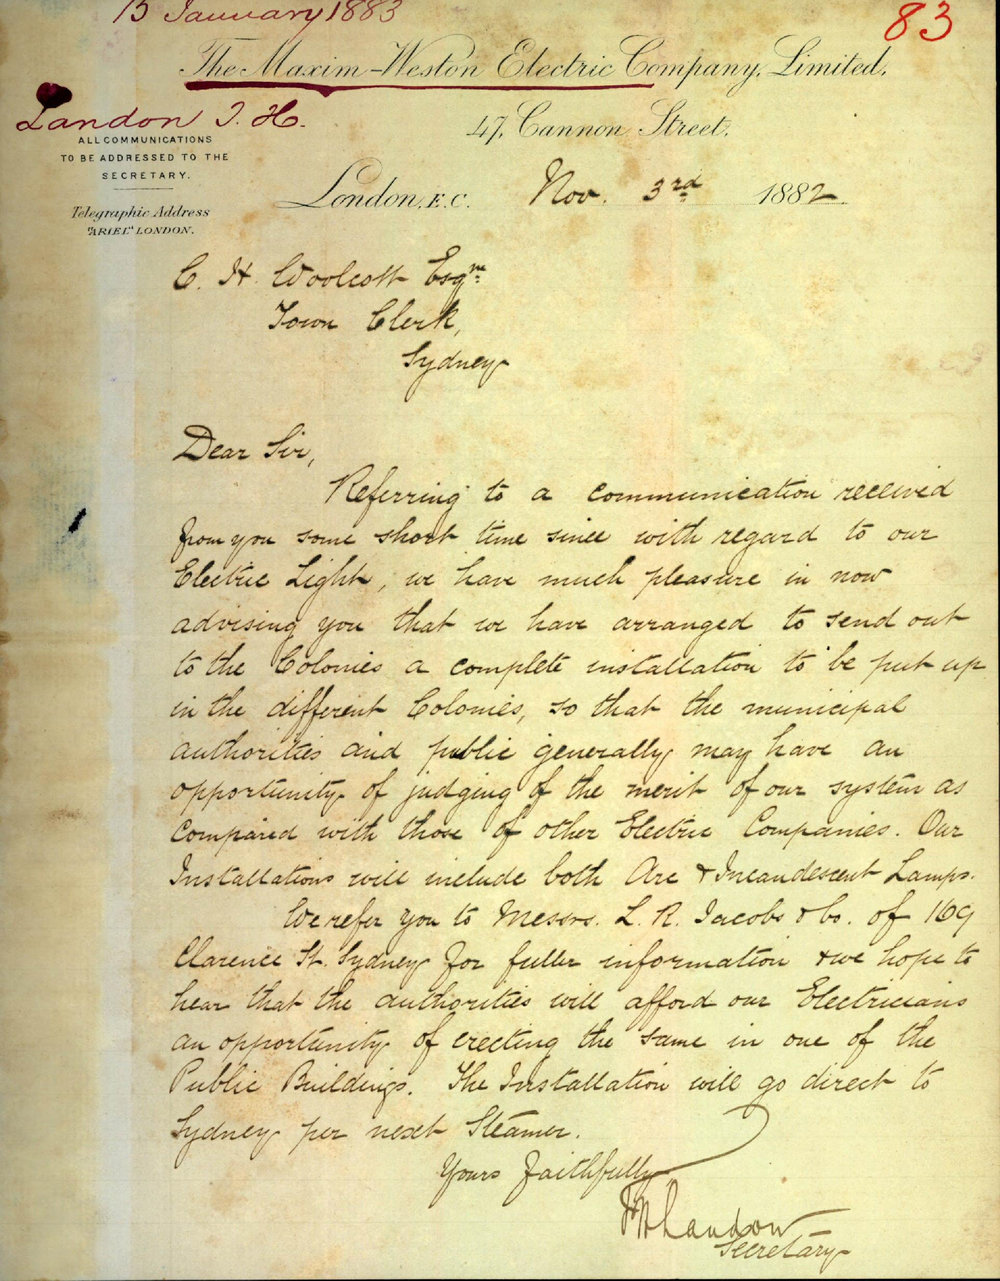 15 January 1883
83
The Maxim-Weston Electric Company, Limited.
Landon J. H.
47, Cannon Street,
ALL COMMUNICATIONS
TO BE ADDRESSED TO THE
SECRETARY.
London, E.C. Nov. 3rd 1882
Telegraphic Address
"ARIEL" LONDON.
C. H. Woolcott Esqre
Town Clerk,
Sydney
Dear Sir,
Referring to a communication received
from you some short time since with regard to our
Electric Light, we have much pleasure in now
advising you that we have arranged to send out
to the Colonies a complete installation to be put up
in the different Colonies, so that the municipal
authorities and public generally may have an
opportunity of judging of the merit of our system as
compared with those of other Electric Companies. Our
Installations will include both Arc & Incandescent Lamps.
We refer you to Messrs. L. R. Jacobs & Co. of 169
Clarence St. Sydney for fuller information & we hope to
hear that the authorities will afford our Electricians
an opportunity of erecting the same in one of the
Public Buildings. The Installation will go direct to
Sydney per next Steamer.
Yours faithfully
Landon
Secretary